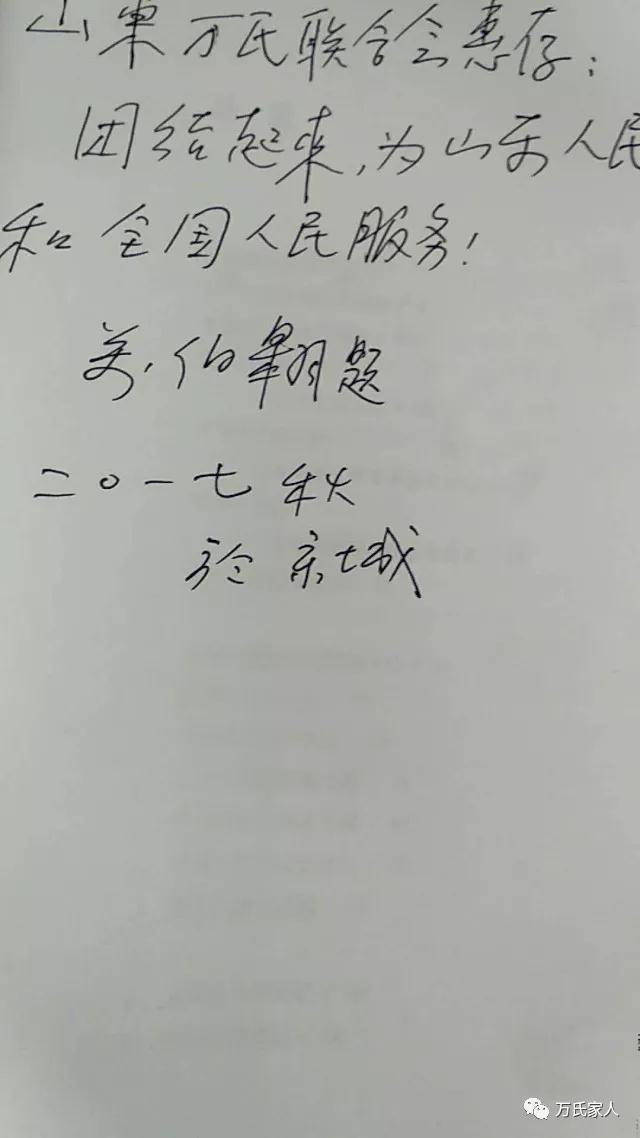 山東万氏联合会惠存：
团结起来，为山东人民
和全国人民服务！
万伯翱题
二〇一七秋
於京城
万氏家人